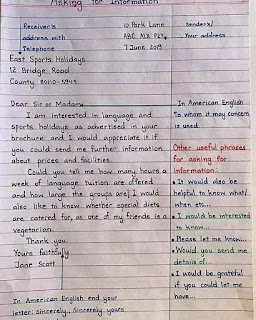 Asking for Information
Receiver's
address with
Telephone
10 Park Lane
7 June 2019
Sender's/
Your address
East Sports Holidays
12 Bridge Road
County
Dear Sir or Madam,
I am interested in language and
sports holidays as advertised in your
brochure and I would appreciate it if
you could send me further information
about prices and facilities.
Could you tell me how many hours a
week of language tuition are offered
and how large the groups are? I would
also like to know whether special diets
are catered for, as one of my friends is a
vegetarian.
Thank you
Yours faithfully
Jane Scott
In American English end your
letter: Sincerely, Sincerely yours
In American English
To whom it may concern
is used.
Other useful phrases
for asking for
information:
It would also be
helpful to know what/
when etc...
I would be interested
to know...
Please let me know...
Would you send me
details of...
I would be grateful
if you could let me
have...